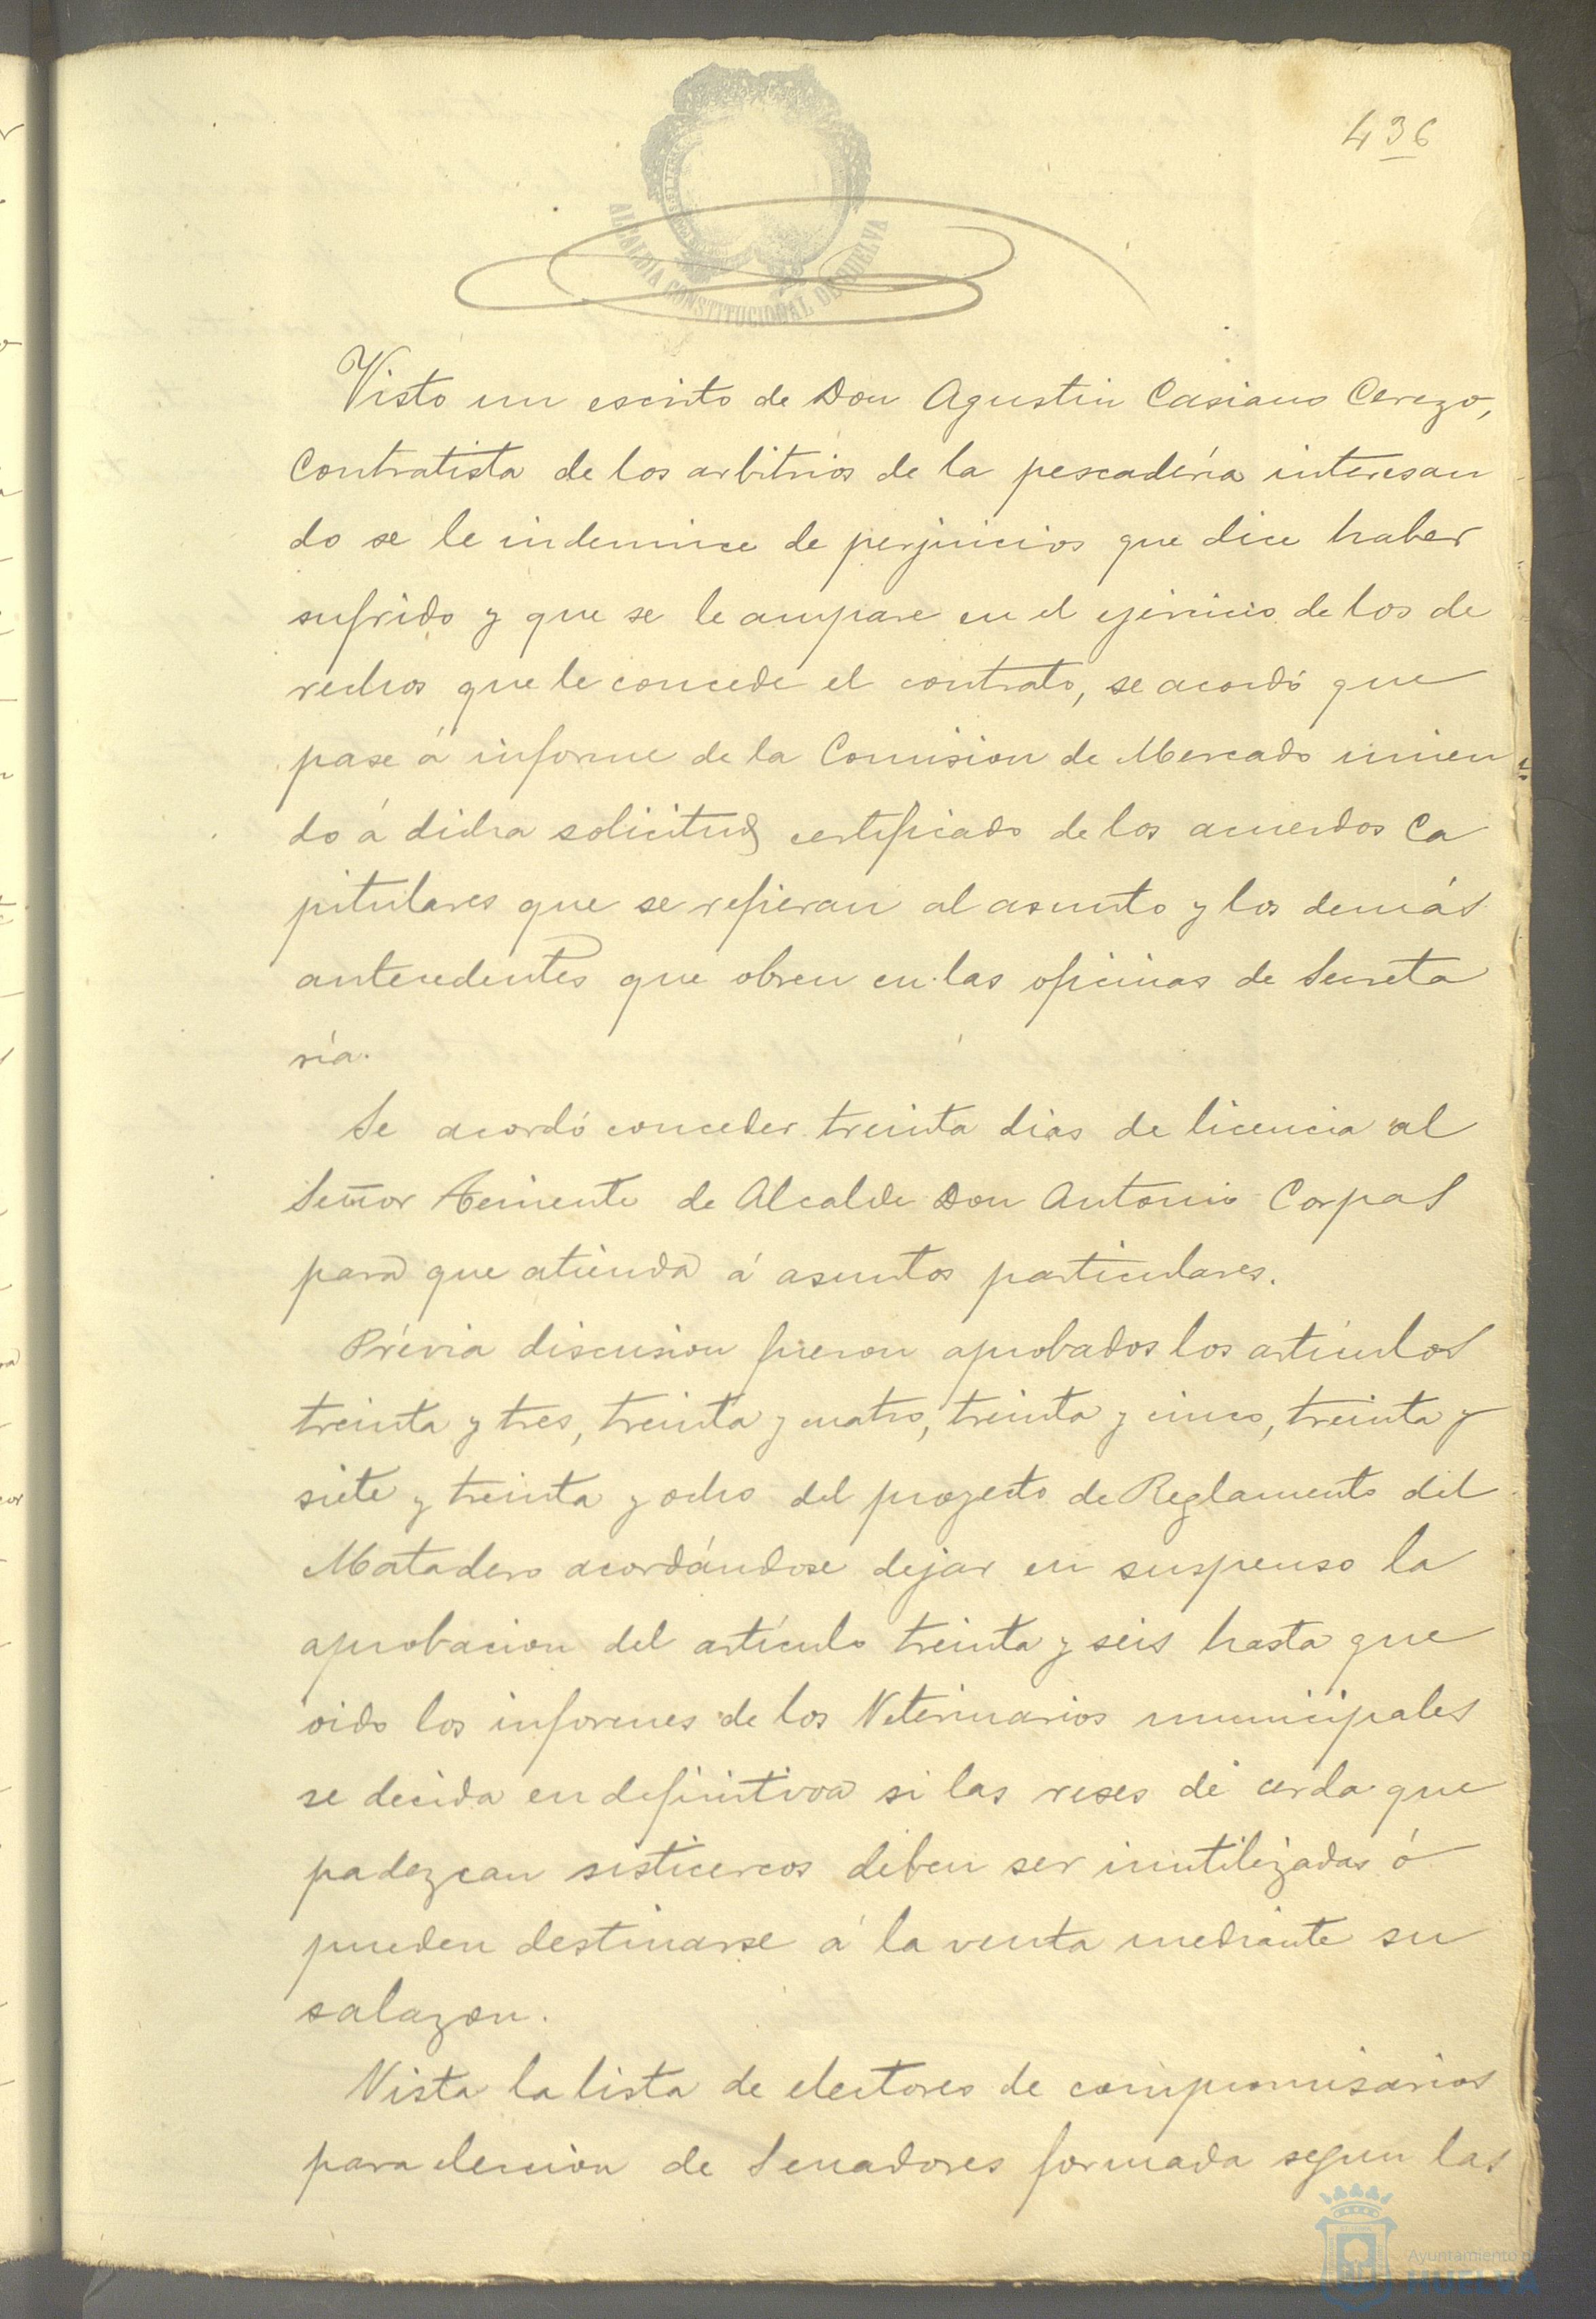 436
ALCALDIA CONSTITUCIONAL DE HUELVA
Visto un escrito de Don Agustin Casiano Cerezo,
Contratista de los arbitrios de la pescadería interesan
do se le indemnice de perjuicios que dice haber
sufrido y que se le ampare en el ejercicio de los de
rechos que le concede el contrato, se acordó que
pase á informe de la Comision de Mercado unien
do á dicha solicitud certificado de los acuerdos Ca
pitulares que se refieran al asunto y los demás
antecedentes que obren en las oficinas de Secreta
ría.
Se acordó conceder treinta dias de licencia al
Señor Teniente de Alcalde Don Antonio Corpas
para que atienda á asuntos particulares.
Prévia discusion fueron aprobados los artículos
treinta y tres, treinta y cuatro, treinta y cinco, treinta y
siete y treinta y ocho del proyecto de Reglamento del
Matadero acordándose dejar en suspenso la
aprobacion del artículo treinta y seis hasta que
oido los informes de los Veterinarios municipales
se decida en definitiva si las reses de cerda que
padezcan sisticercos deben ser inutilizadas ó
pueden destinarse á la venta mediante su
salazon.
Vista la lista de electores de compromisarios
para eleccion de Senadores formada segun las
Ayuntamiento de
HUELVA